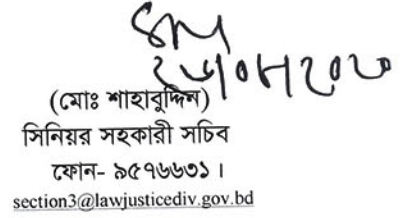 (মোঃ শাহাবুদ্দিন)
সিনিয়র সহকারী সচিব
ফোন- ৯৫৭৬৬৩১ ।
section3@lawjusticediv.gov.bd